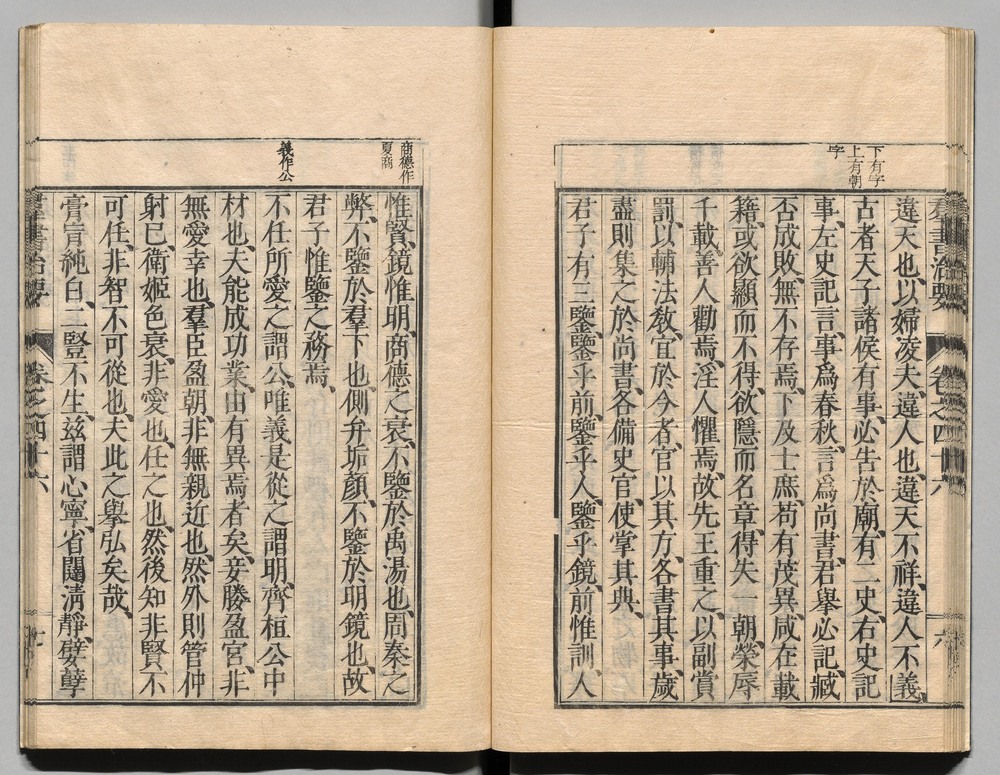 羣書治要 卷之四十六 六
下有字
上有朝
字
違天也、以婦凌夫、違人也、違天不祥、違人不義、
古者天子諸侯有事、必告於廟、有二史、右史記
事、左史記言、事爲春秋、言爲尚書、君舉必記、臧
否成敗、無不存焉、下及士庶、苟有茂異、咸在載
籍、或欲顯而不得、欲隱而名章、得失一朝、榮辱
千載、善人勸焉、淫人懼焉、故先王重之、以副賞
罰、以輔法敎、宜於今者、官以其方、各書其事、歲
盡則集之於尚書、各備史官、使掌其典、
君子有三鑒、鑒乎前、鑒乎人、鑒乎鏡、前惟訓、人
商德作
夏商
義作公
惟賢、鏡惟明、商德之衰、不鑒於禹湯也、周秦之
弊、不鑒於羣下也、側弁垢顏、不鑒於明鏡也、故
君子惟鑒之務焉、
不任所愛之謂公、唯義是從之謂明、齊桓公中
材也、夫能成功業、由有異焉者矣、妾媵盈宮、非
無愛幸也、羣臣盈朝、非無親近也、然外則管仲
射已、衛姬色衰、非愛也、任之也、然後知非賢不
可任、非智不可從也、夫此之舉弘矣哉、
膏肓純白、二豎不生、兹謂心寧、省闥淸靜、嬖孽
羣書治要 卷之四十六 七